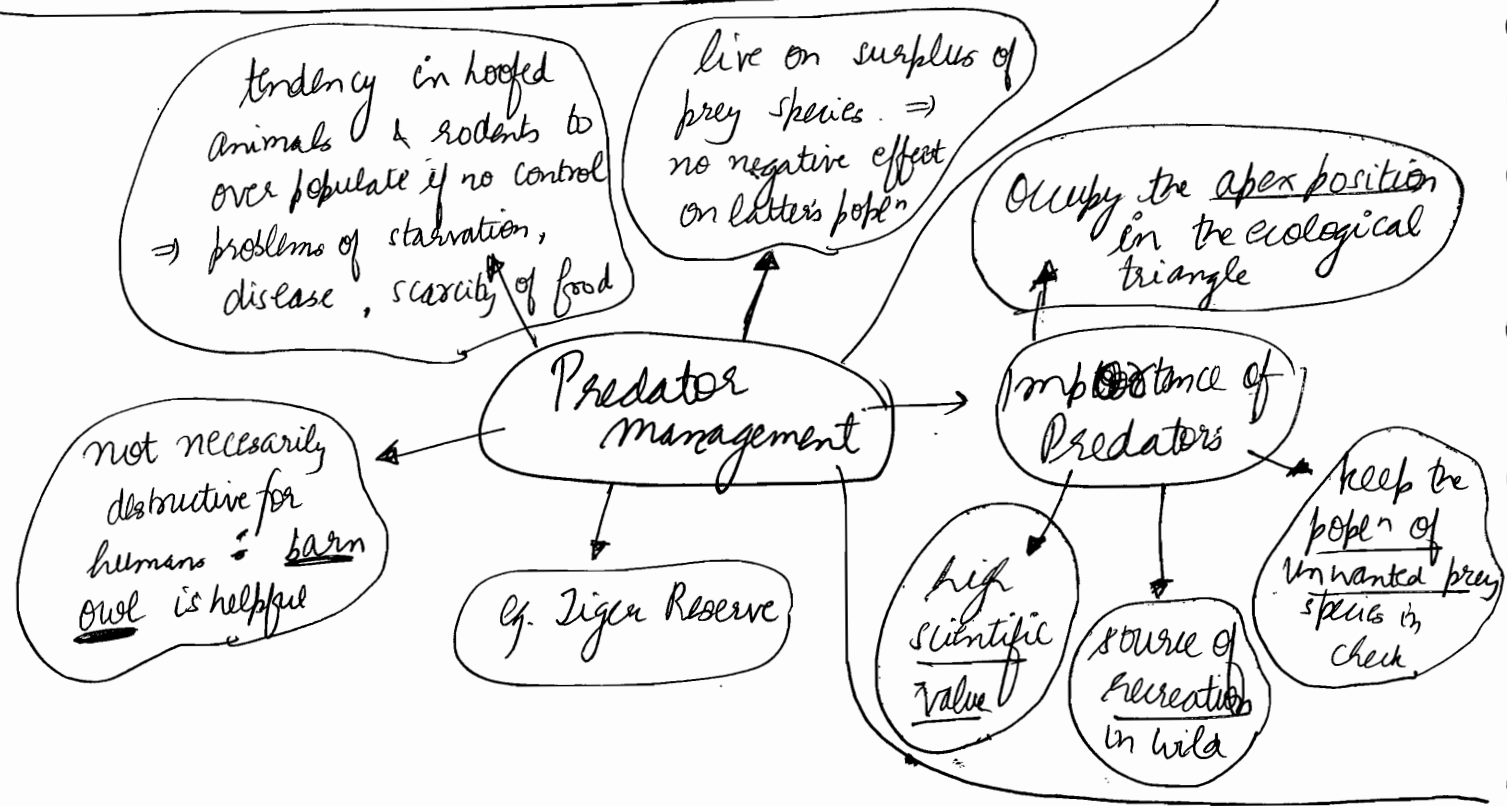 tendency in hoofed
animals & rodents to
over populate if no control
⇒ problems of starvation,
disease, scarcity of food
live on surplus of
prey species. ⇒
no negative effect
on latter's popⁿ
Occupy the apex position
in the ecological
triangle
Predator
management
Importance of
Predators
not necesarily
destructive for
humans : barn
owl is helpful
eg. Tiger Reserve
high
scientific
value
source of
recreation
in wild
keep the
popⁿ of
unwanted prey
species in
check.